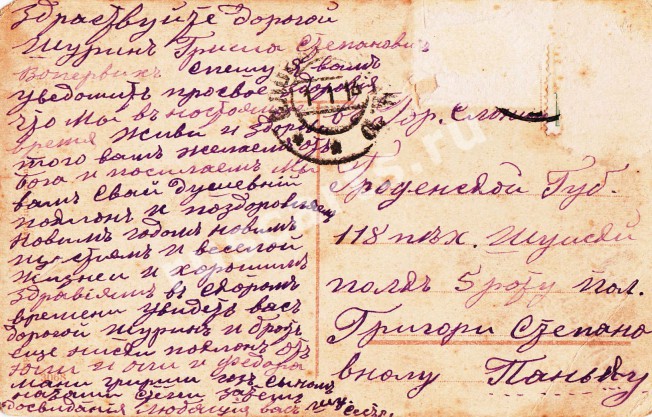 Здраствуйте дорогой
Шуринъ Гриша Степановичъ
вопервихъ спешу вамъ
уведомить просвое здоровя
что мы въ настояще
время живи и здоро
того вамъ желаемъ отъ
бога и посилаемъ мы
вамъ свай душевний
поклонъ и поздоровляем
новимъ годомъ новимъ
щастямъ и веселой
жизнеи и хорошимъ
здравіямъ въ скоромъ
времени увидеть васъ
дорогой шуринъ и братъ
еще низки поклонъ отъ
и
сыномъ
досвидания любящия васъ
въ гор. Слоним
Гроденской Губ.
118 пѣх. Шуйскй
полкъ 5 роту Пол.
Григори Степано
вному